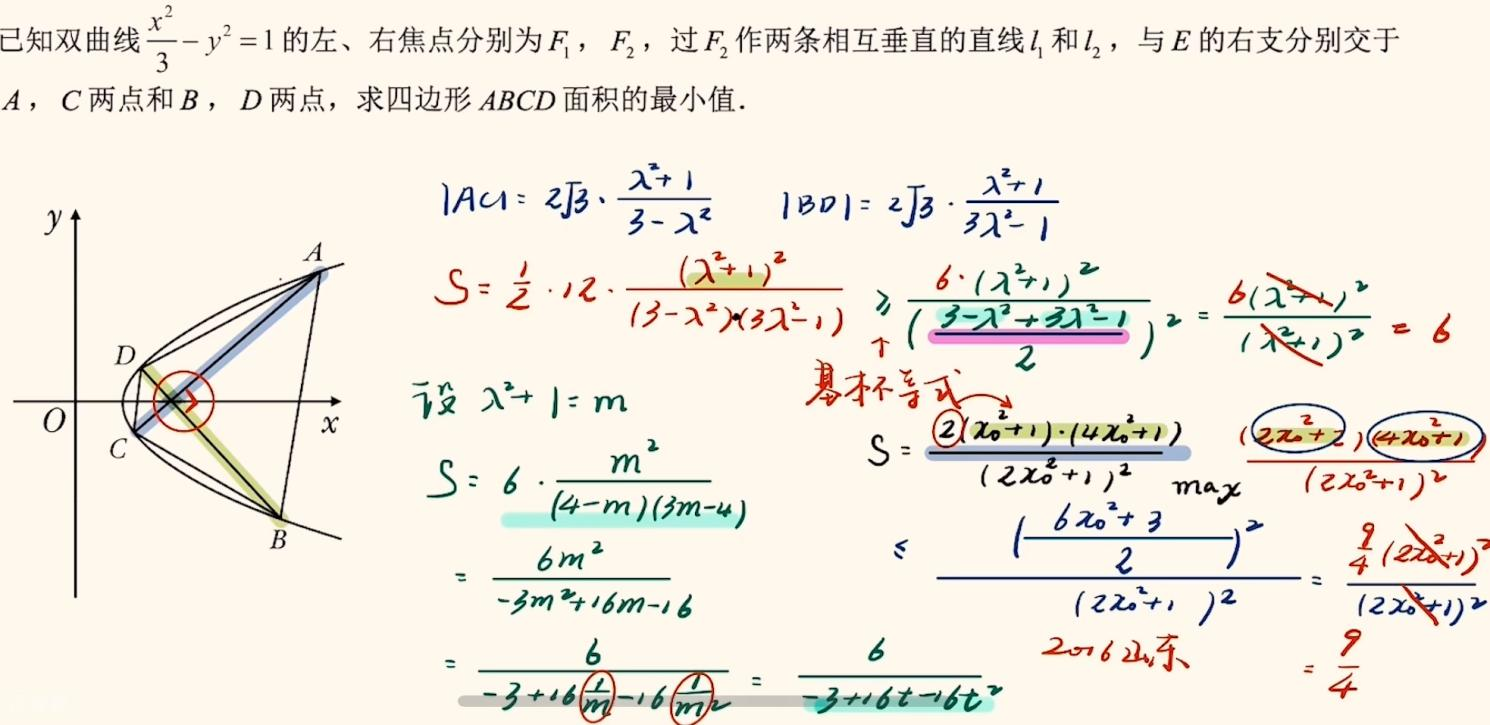 已知双曲线 x²/3 − y² = 1 的左、右焦点分别为 F₁，F₂，过 F₂ 作两条相互垂直的直线 l₁ 和 l₂，与 E 的右支分别交于
A，C 两点和 B，D 两点，求四边形 ABCD 面积的最小值．
|AC| = 2√3 · (λ²+1)/(3−λ²)    |BD| = 2√3 · (λ²+1)/(3λ²−1)
S = 1/2 · 12 · (λ²+1)²/((3−λ²)·(3λ²−1)) ≥ 6·(λ²+1)²/((3−λ²+3λ²−1)/2)² = 6(λ²+1)²/(λ²+1)² = 6
↑
基本不等式
设 λ²+1 = m
S = 6 · m²/((4−m)(3m−4))
= 6m²/(−3m²+16m−16)
= 6/(−3+16(1/m)−16(1/m²)) = 6/(−3+16t−16t²)
S = 2(x₀²+1)·(4x₀²+1)/(2x₀²+1)² max    (2x₀²+2)(4x₀²+1)/(2x₀²+1)²
≤ ((6x₀²+3)/2)²/(2x₀²+1)² = 9/4(2x₀²+1)²/(2x₀²+1)²
2016山东    = 9/4
y
A
D
O
x
C
B